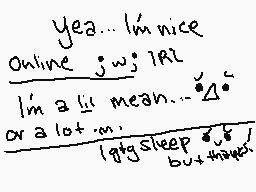 Yea... I'm nice
Online ;w; IRL
I'm a lil mean...
or a lot .m.
I gtg sleep
but thanks!